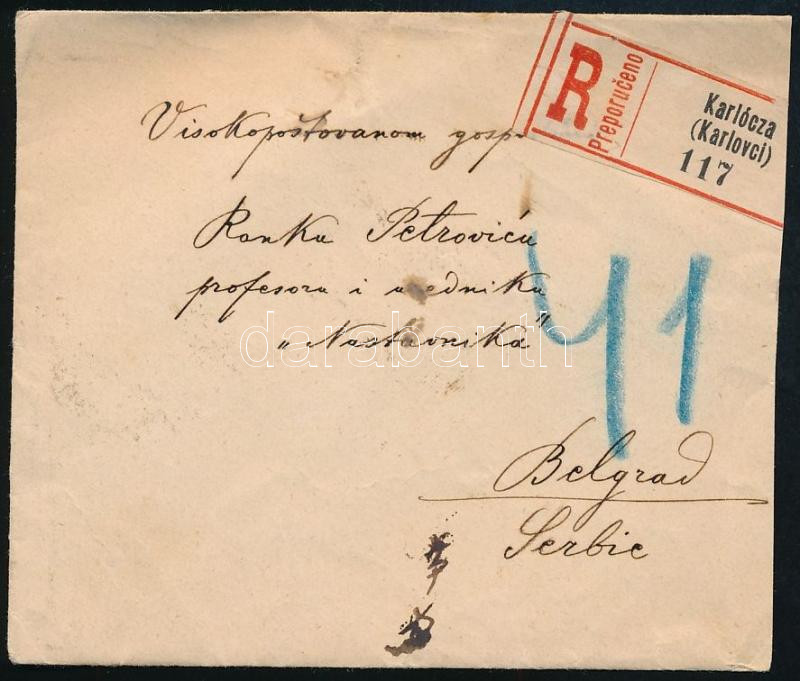 R
Preporučeno
Karlócza
(Karlovci)
117
Visokopoštovanom gosp
Ranku Petroviću
profesoru i uredniku
„Nastavnika"
41
Belgrad
Serbie
darabanth